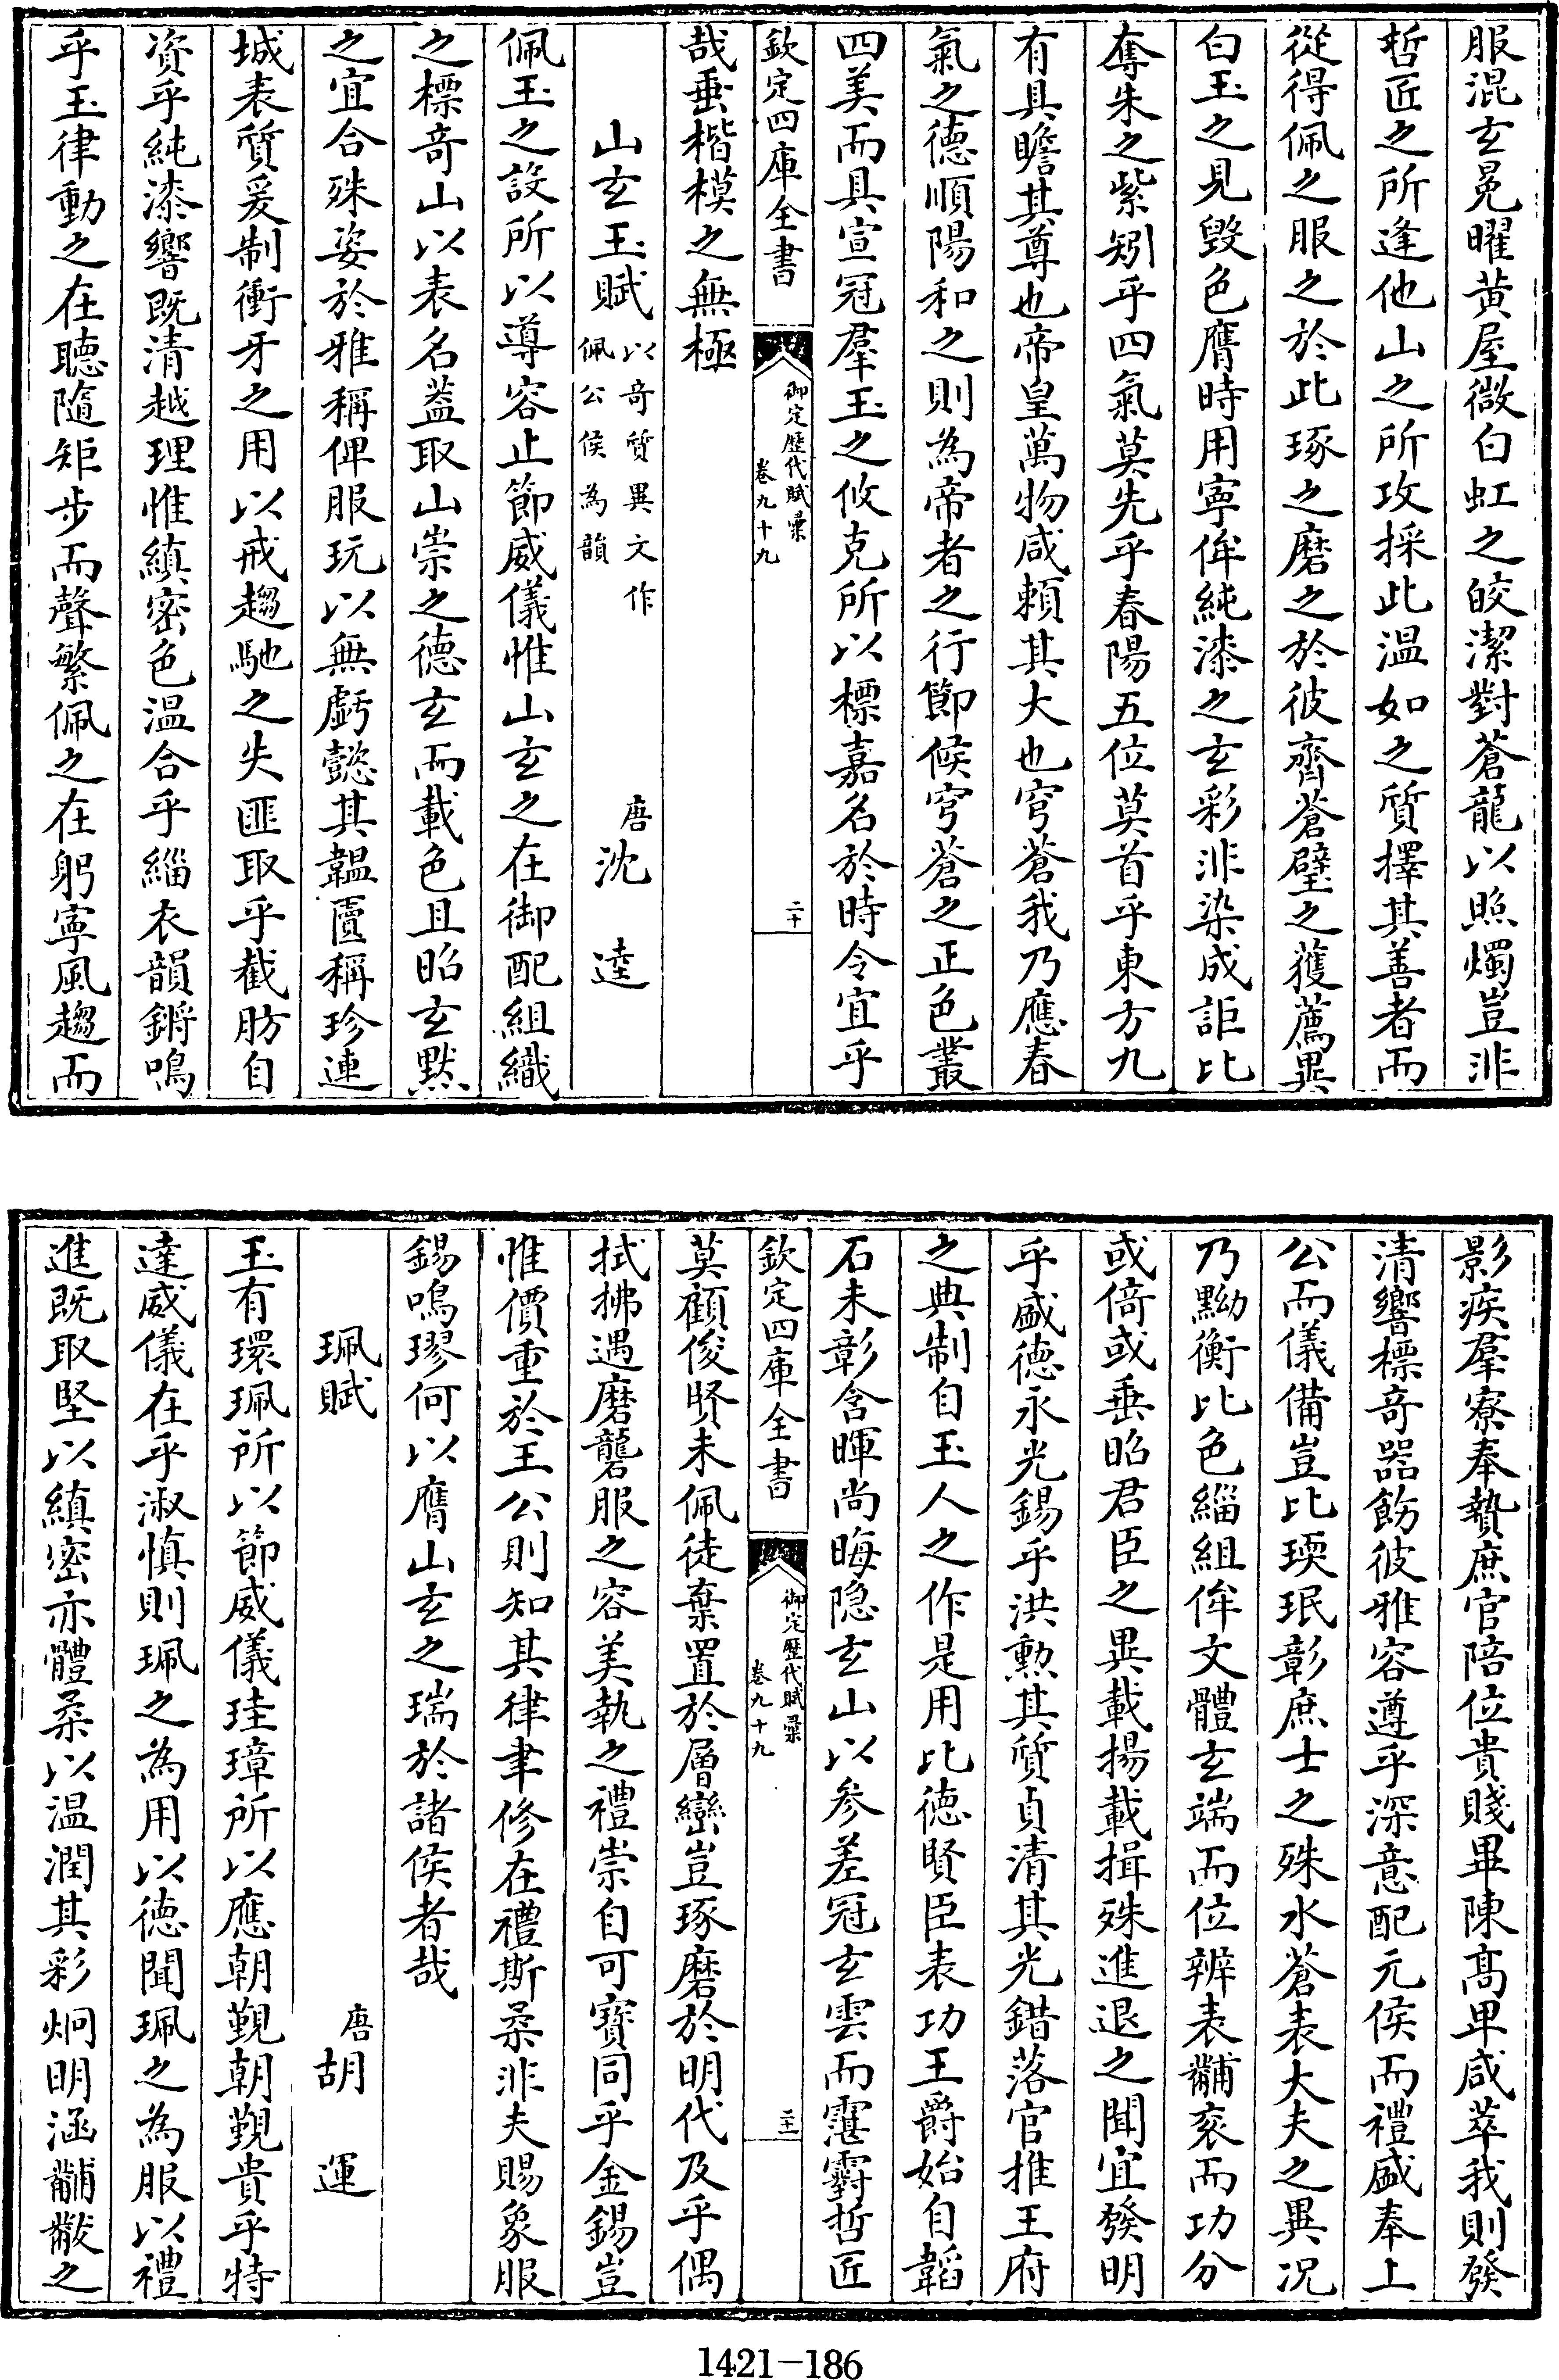 服混玄冕曜黄屋微白虹之皎潔對蒼龍以照燭豈非
哲匠之所逢他山之所攻採此温如之質擇其善者而
從得佩之服之於此琢之磨之於彼齊蒼璧之獲薦異
白玉之見毁色膺時用寧侔純漆之玄彩非染成詎比
奪朱之紫矧乎四氣莫先乎春陽五位莫首乎東方九
有具瞻其尊也帝皇萬物咸頼其大也穹蒼我乃應春
氣之德順陽和之則為帝者之行節候穹蒼之正色叢
四美而具宣冠羣玉之攸克所以標嘉名於時令宜乎
欽定四庫全書
御定歴代賦彙
卷九十九
二十
哉垂楷模之無極
山玄玉賦
以奇質異文作
佩公侯為韻
唐沈逵
佩玉之設所以導容止節威儀惟山玄之在御配組織
之標奇山以表名葢取山崇之德玄而載色且昭玄黙
之宜合殊姿於雅稱俾服玩以無虧懿其韞匵稱珍連
城表質爰制衝牙之用以戒趨馳之失匪取乎截肪自
資乎純漆響既清越理惟縝密色温合乎緇衣韻鏘鳴
乎玉律動之在聽隨矩步而聲繁佩之在躬寧風趨而
影疾羣寮奉贄庶官陪位貴賤畢陳髙卑咸萃我則發
清響標奇器飭彼雅容遵乎深意配元侯而禮盛奉上
公而儀備豈比瑌珉彰庶士之殊水蒼表大夫之異况
乃黝衡比色緇組侔文體玄端而位辨表黼衮而功分
或倚或垂昭君臣之異載揚載揖殊進退之聞宜發明
乎盛德永光錫乎洪勲其質貞清其光錯落官推王府
之典制自玉人之作是用比德賢臣表功王爵始自韜
石未彰含暉尚晦隐玄山以參差冠玄雲而䨴䨴哲匠
欽定四庫全書
御定歴代賦彙
卷九十九
二十一
莫顧俊賢未佩徒棄置於層巒豈琢磨於明代及乎偶
拭拂遇磨礲服之容美執之禮崇自可寳同乎金錫豈
惟價重於王公則知其律聿修在禮斯柔非夫賜象服
錫鳴璆何以膺山玄之瑞於諸侯者哉
珮賦
唐胡運
玉有環珮所以節威儀珪璋所以應朝覲朝覲貴乎特
達威儀在乎淑慎則珮之為用以德聞珮之為服以禮
進既取堅以縝密亦體柔以温潤其彩炯明涵黼黻之
1421-186